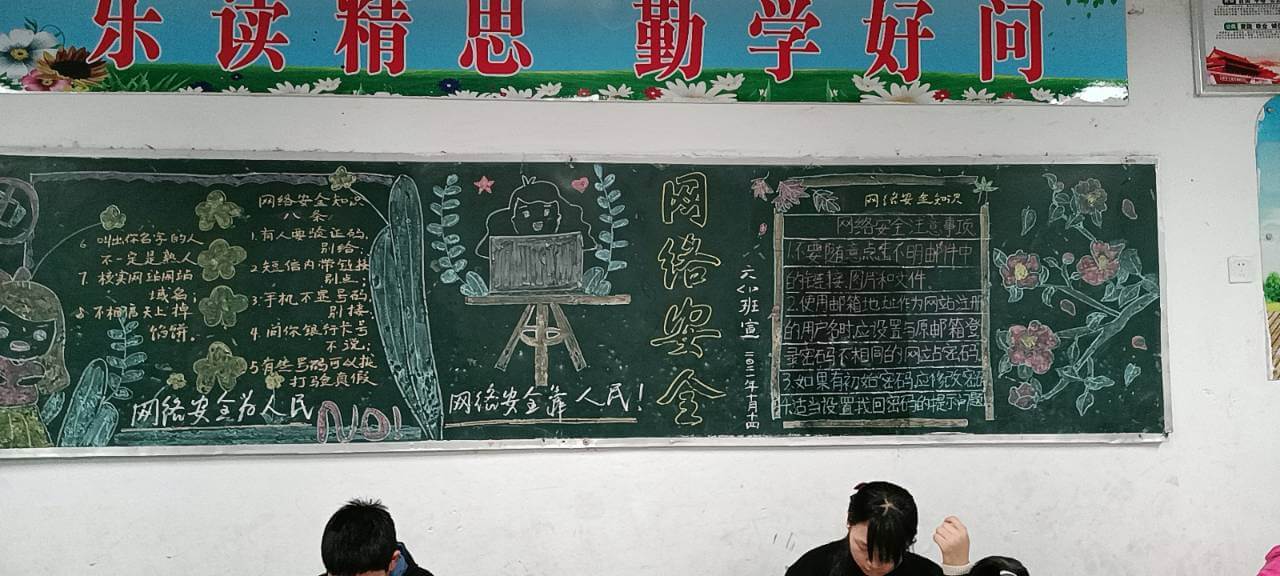 乐读精思 勤学好问
网络安全知识
八条
1.有人要验证码,
别给;
2.短信内带链接
别点;
3.手机不显号码,
别接;
4.问你银行卡号
不说;
5.有些号码可以拨
打验真假
6 叫出你名字的人
不一定是熟人
7. 核实网站网站
域名;
8 不相信天上掉
馅饼.
网络安全为人民
NO!
网络安全靠人民!
网络安全
六(1)班宣
二〇二一年十月十四
网络安全知识
网络安全注意事项
1.不要随意点击不明邮件中
的链接、图片和文件.
2.使用邮箱地址作为网站注册
的用户名时应设置与原邮箱登
录密码不相同的网站密码.
3.如果有初始密码应修改密
码适当设置找回密码的提示问题